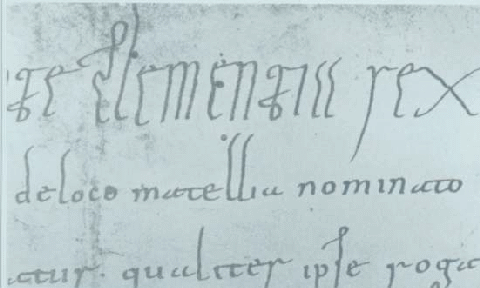 te clementia rex
de loco matellia nominato
atur. qualiter ipse roga